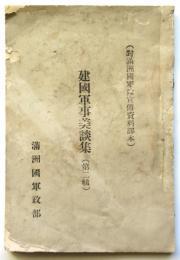 (對滿洲國軍宣傳資料譯本)
建國軍事美談集(第二輯)
滿洲國軍政部